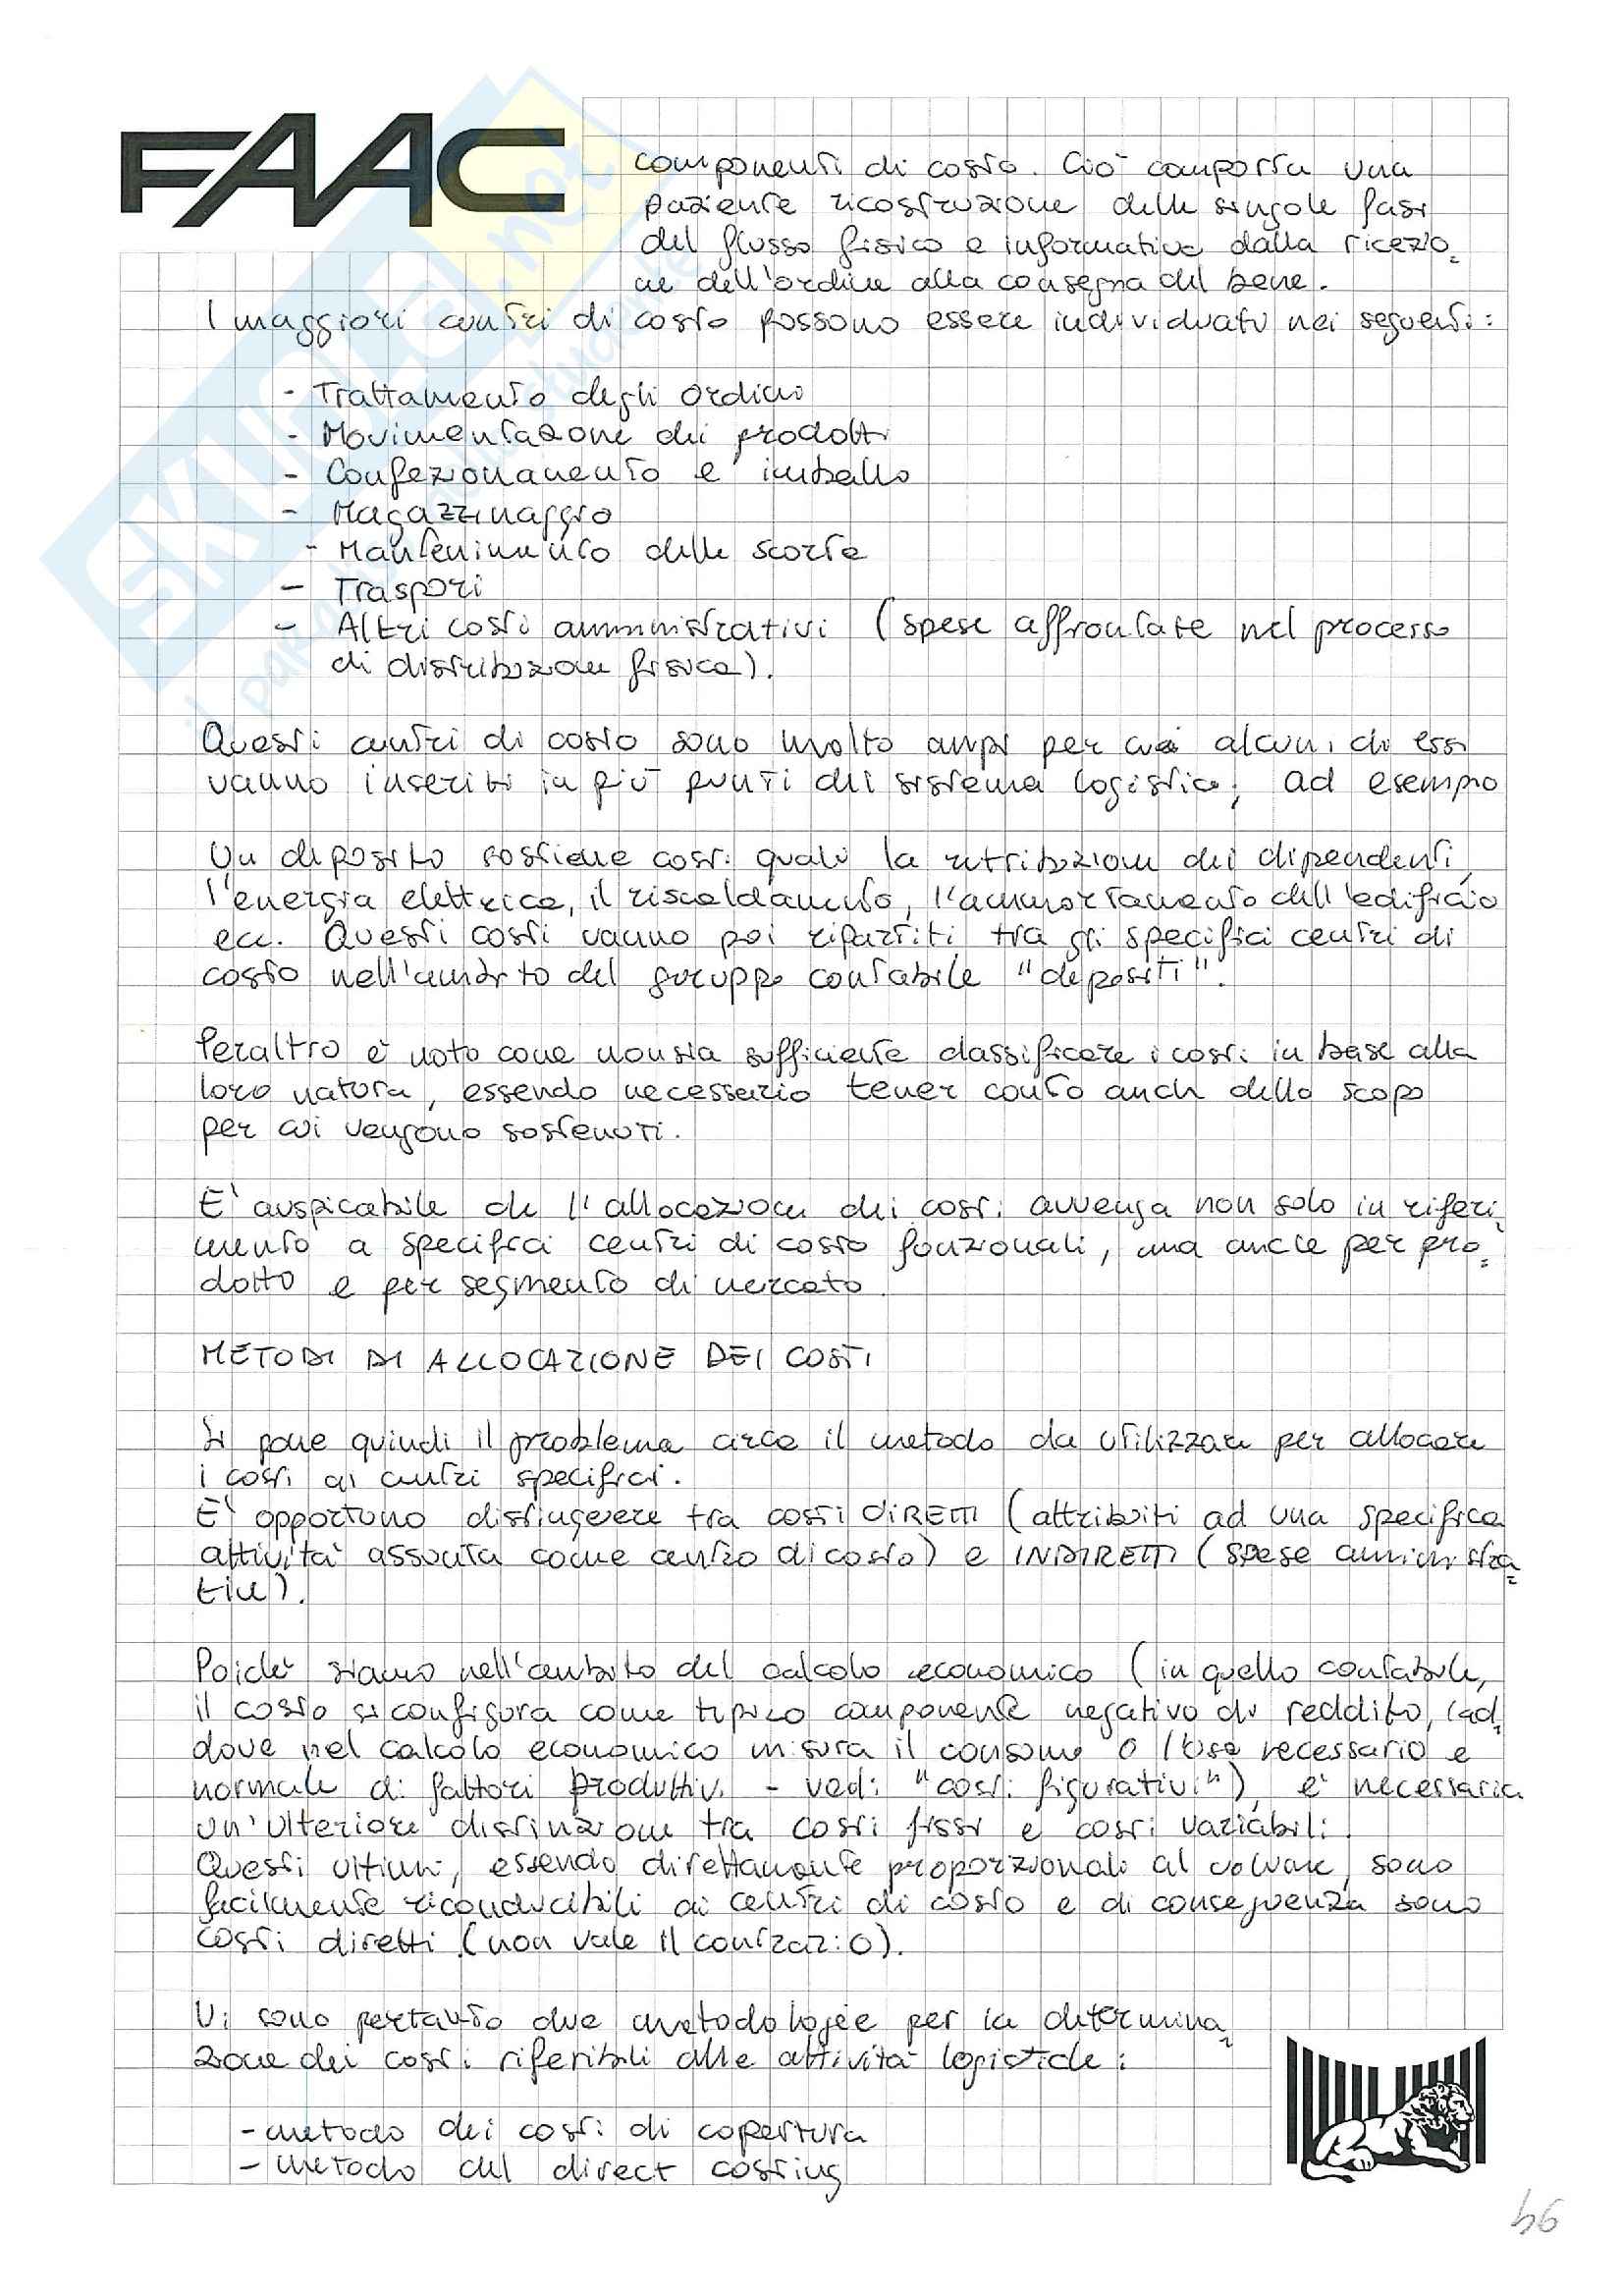 FAAC
componenti di costo. Ciò comporta una
paziente ricostruzione delle singole fasi
del flusso fisico e informativo dalla ricezio=
ne dell'ordine alla consegna del bene.
I maggiori centri di costo possono essere individuati nei seguenti:
- Trattamento degli ordini
- Movimentazione dei prodotti
- Confezionamento e imballo
- Magazzinaggio
- Mantenimento delle scorte
- Traspori
- Altri costi amministrativi (spese affrontate nel processo
di distribuzione fisica).
Questi centri di costo sono molto ampi per cui alcuni di essi
vanno inseriti in più punti del sistema logistico; ad esempio
Un deposito sostiene costi quali la retribuzione dei dipendenti,
l'energia elettrica, il riscaldamento, l'ammortamento dell'edificio
ecc. Questi costi vanno poi ripartiti tra gli specifici centri di
costo nell'ambito del gruppo contabile "depositi".
Peraltro è noto come non sia sufficiente classificare i costi in base alla
loro natura, essendo necessario tener conto anche dello scopo
per cui vengono sostenuti.
E' auspicabile che l'allocazione dei costi avvenga non solo in riferi=
mento a specifici centri di costo funzionali, ma anche per pro=
dotto e per segmento di mercato.
METODI DI ALLOCAZIONE DEI COSTI
Si pone quindi il problema circa il metodo da utilizzare per allocare
i costi ai centri specifici.
E' opportuno distinguere tra costi DIRETTI (attribuiti ad una specifica
attività assunta come centro di costo) e INDIRETTI (spese amministra=
tive).
Poiché siamo nell'ambito del calcolo economico (in quello contabile,
il costo si configura come tipico componente negativo di reddito, lad=
dove nel calcolo economico misura il consumo o l'uso necessario e
normale di fattori produttivi - vedi "costi figurativi"), è necessaria
un'ulteriore distinzione tra costi fissi e costi variabili.
Questi ultimi, essendo direttamente proporzionali al volume, sono
facilmente riconducibili ai centri di costo e di conseguenza sono
costi diretti (non vale il contrario).
Vi sono pertanto due metodologie per la determina=
zione dei costi riferibili alle attività logistiche:
- metodo dei costi di copertura
- metodo del direct costing
46